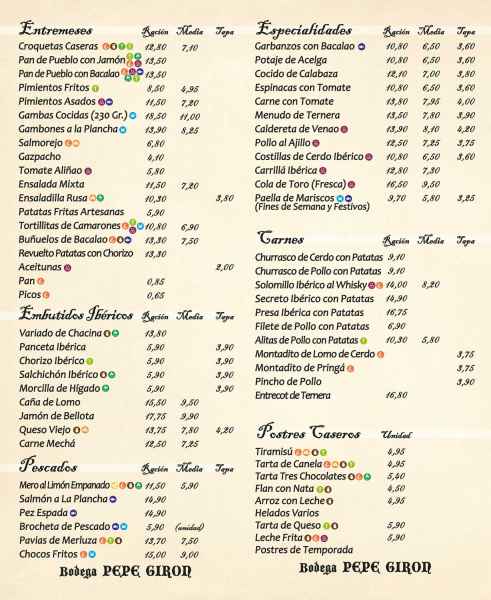 Entremeses Ración Media Tapa
Croquetas Caseras 12,80 7,10
Pan de Pueblo con Jamón 13,50
Pan de Pueblo con Bacalao 13,50
Pimientos Fritos 8,50 4,95
Pimientos Asados 11,50 7,20
Gambas Cocidas (230 Gr.) 18,50 11,00
Gambones a la Plancha 13,90 8,25
Salmorejo 6,30
Gazpacho 4,10
Tomate Aliñao 5,80
Ensalada Mixta 11,50 7,20
Ensaladilla Rusa 10,30 3,80
Patatas Fritas Artesanas 5,90
Tortillitas de Camarones 10,80 6,90
Buñuelos de Bacalao 13,30 7,50
Revuelto Patatas con Chorizo 13,30
Aceitunas 2,00
Pan 0,85
Picos 0,65
Embutidos Ibéricos Ración Media Tapa
Variado de Chacina 13,80
Panceta Ibérica 5,90 3,90
Chorizo Ibérico 5,90 3,90
Salchichón Ibérico 5,90 3,90
Morcilla de Hígado 5,90 3,90
Caña de Lomo 15,50 9,50
Jamón de Bellota 17,75 9,90
Queso Viejo 13,75 7,80 4,20
Carne Mechá 12,50 7,25
Pescados Ración Media Tapa
Mero al Limón Empanado 11,50 5,90
Salmón a La Plancha 14,90
Pez Espada 14,90
Brocheta de Pescado 5,90 (unidad)
Pavias de Merluza 13,70 7,50
Chocos Fritos 15,00 9,00
Bodega PEPE GIRON
Especialidades Ración Media Tapa
Garbanzos con Bacalao 10,80 6,50 3,60
Potaje de Acelga 10,80 6,50 3,60
Cocido de Calabaza 12,10 7,00 3,80
Espinacas con Tomate 10,80 6,50 3,60
Carne con Tomate 13,80 7,95 4,00
Menudo de Ternera 13,50 7,80 3,90
Caldereta de Venao 13,90 8,10 4,20
Pollo al Ajillo 12,50 7,25 3,75
Costillas de Cerdo Ibérico 10,80 6,50 3,60
Carrillá Ibérica 12,80 7,30
Cola de Toro (Fresca) 16,50 9,50
Paella de Mariscos 9,70 5,80 3,25
(Fines de Semana y Festivos)
Carnes Ración Media Tapa
Churrasco de Cerdo con Patatas 9,10
Churrasco de Pollo con Patatas 9,10
Solomillo Ibérico al Whisky 14,00 8,20
Secreto Ibérico con Patatas 14,90
Presa Ibérica con Patatas 16,75
Filete de Pollo con Patatas 6,90
Alitas de Pollo con Patatas 10,30 5,80
Montadito de Lomo de Cerdo 3,75
Montadito de Pringá 3,75
Pincho de Pollo 3,90
Entrecot de Ternera 16,80
Postres Caseros Unidad
Tiramisú 4,95
Tarta de Canela 4,95
Tarta Tres Chocolates 5,40
Flan con Nata 4,50
Arroz con Leche 4,95
Helados Varios
Tarta de Queso 5,90
Leche Frita 5,90
Postres de Temporada
Bodega PEPE GIRON